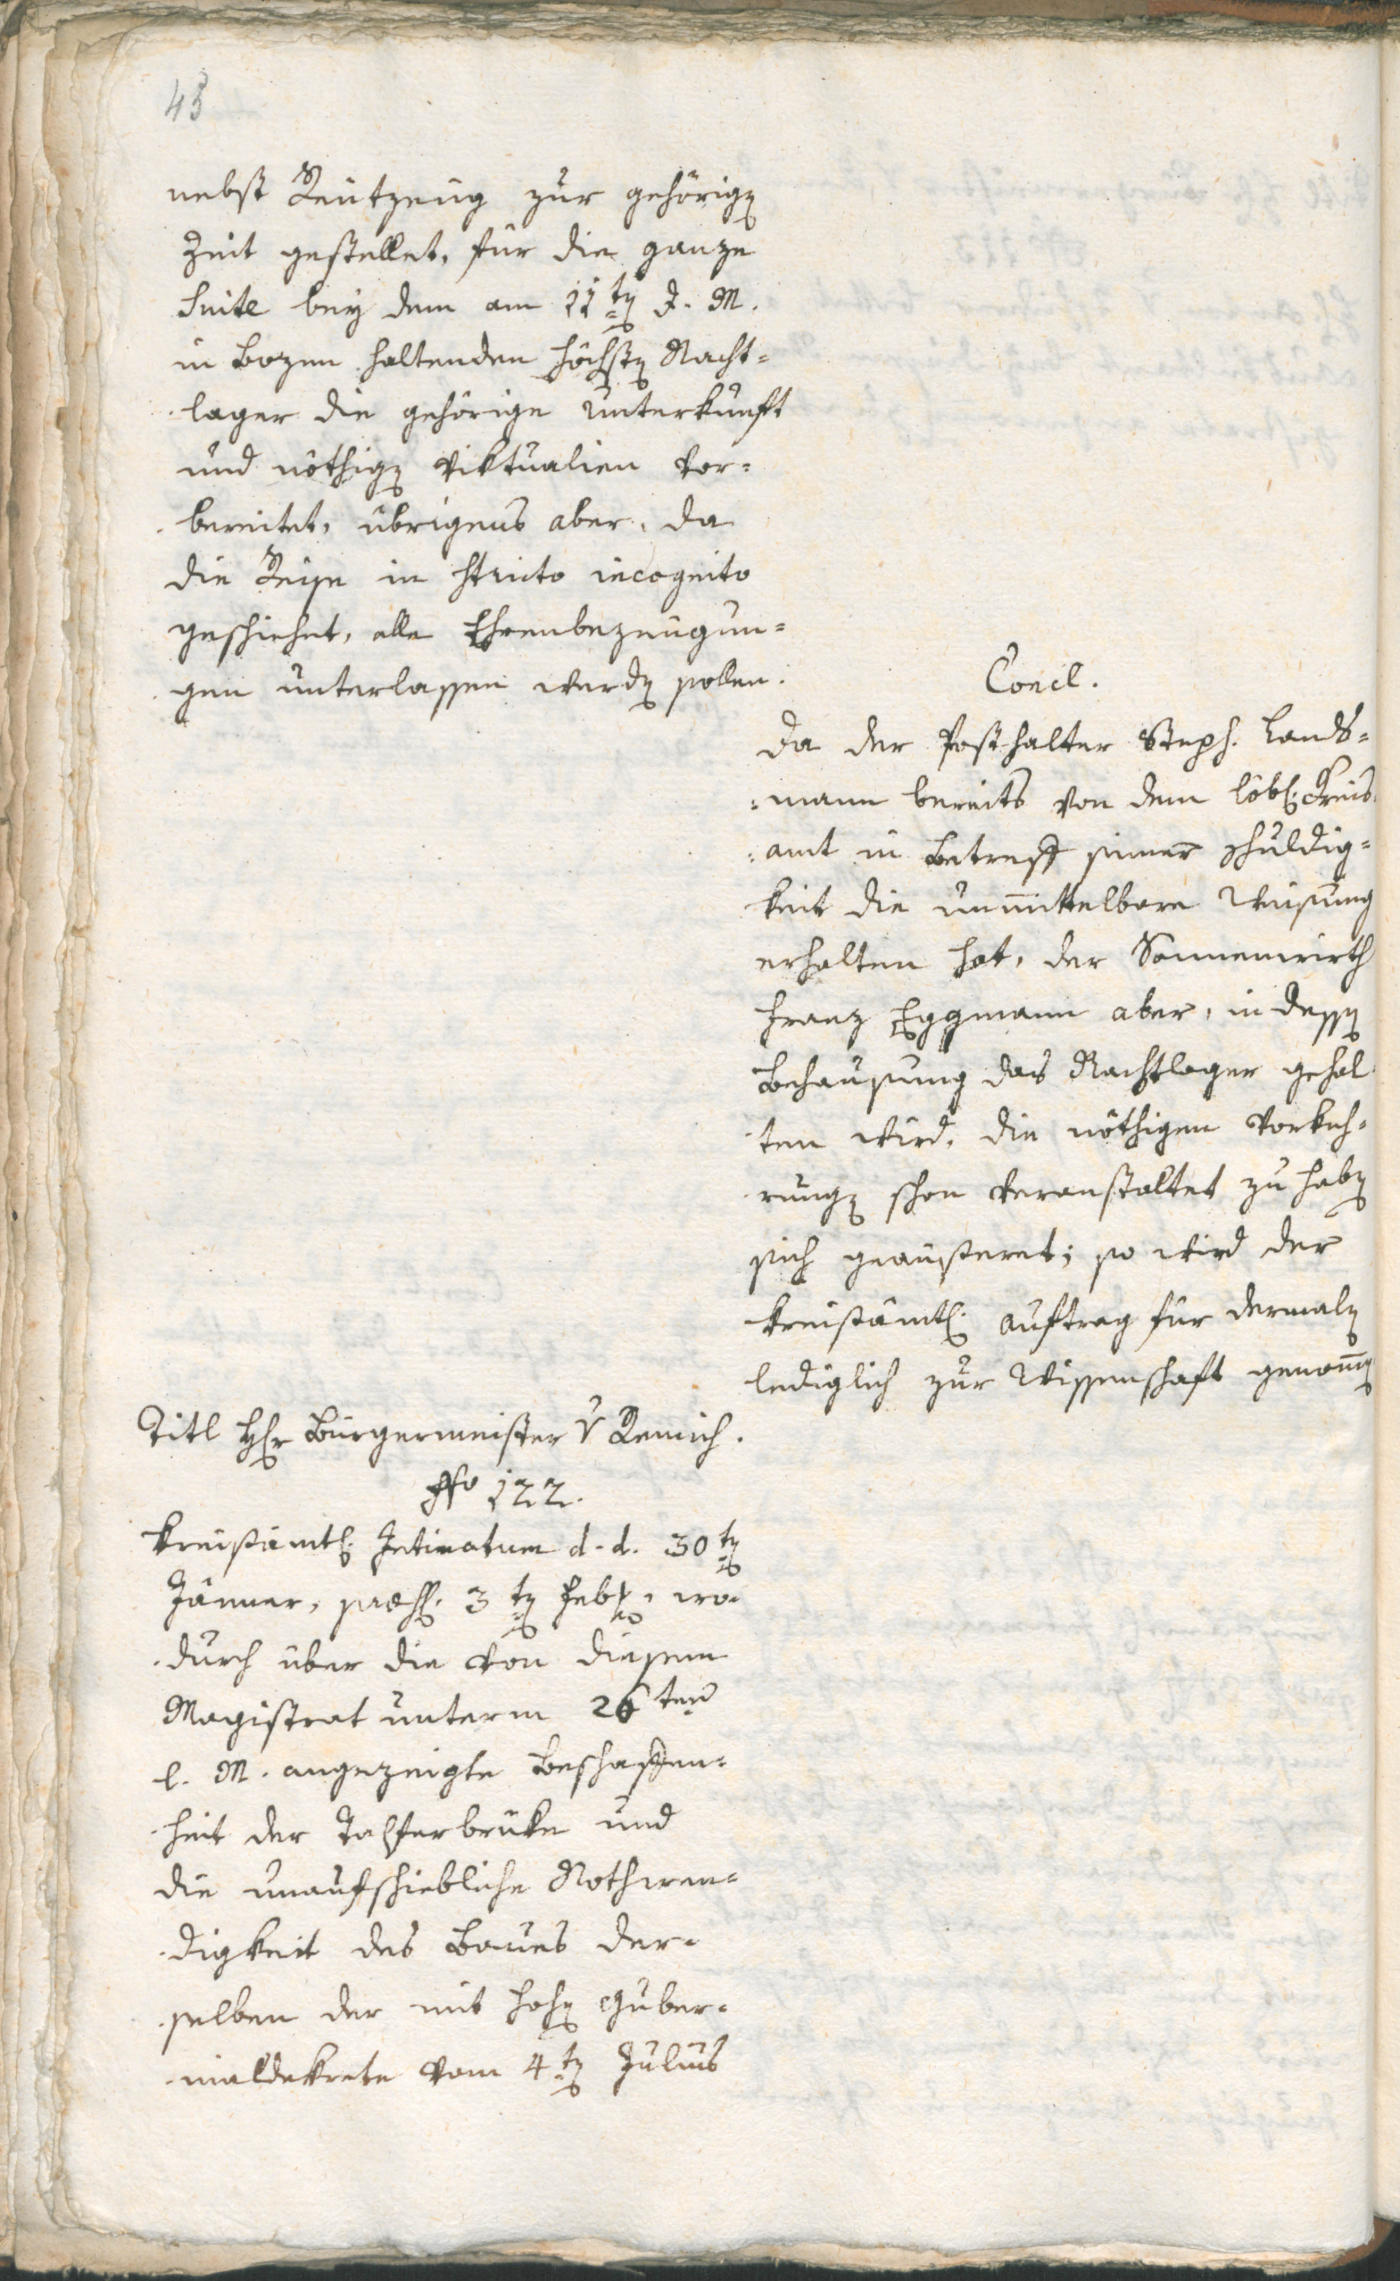 48
nebst Reutzeug zur gehörigen
Zeit gestellet, für die ganze
Suite bey dem am 11ten d. M.
in Bozen haltenden höchsten Nacht=
lager die gehörige Unterkunft
und nöthigen Viktualien vor=
bereitet, übrigens aber, da
die Reise in stricto incognito
geschiehet, alle Ehrenbezeugun=
gen unterlassen werden sollen.
Concl.
Da der Posthalter Steph. Lands=
mann bereits von dem löbl. Kreis
amt in Betreff seiner Schuldig=
keit die unmittelbare Weisung
erhalten hat, der Sonnenwirth
Franz Eggmann aber, in dessen
Behausung das Nachtlager gehal
ten wird, die nöthigen Vorkeh=
rungen schon veranstaltet zu haben
sich geäusseret; so wird der
kreisämtl. Auftrag für dermalen
lediglich zur Wissenschaft genommen
Titl Hr Burgermeister v Remich.
No 122.
Kreisämtl. Intimatum d. d. 30ten
Jänner, praes. 3ten Feb., wo=
durch über die von diesem
Magistrat unterm 26ten
l. M. angezeigte Beschaffen=
heit der Talferbrüke und
die unaufschiebliche Nothwen=
digkeit des Baues der=
selben der mit hohen Guber=
nialdekrete vom 4ten Julius